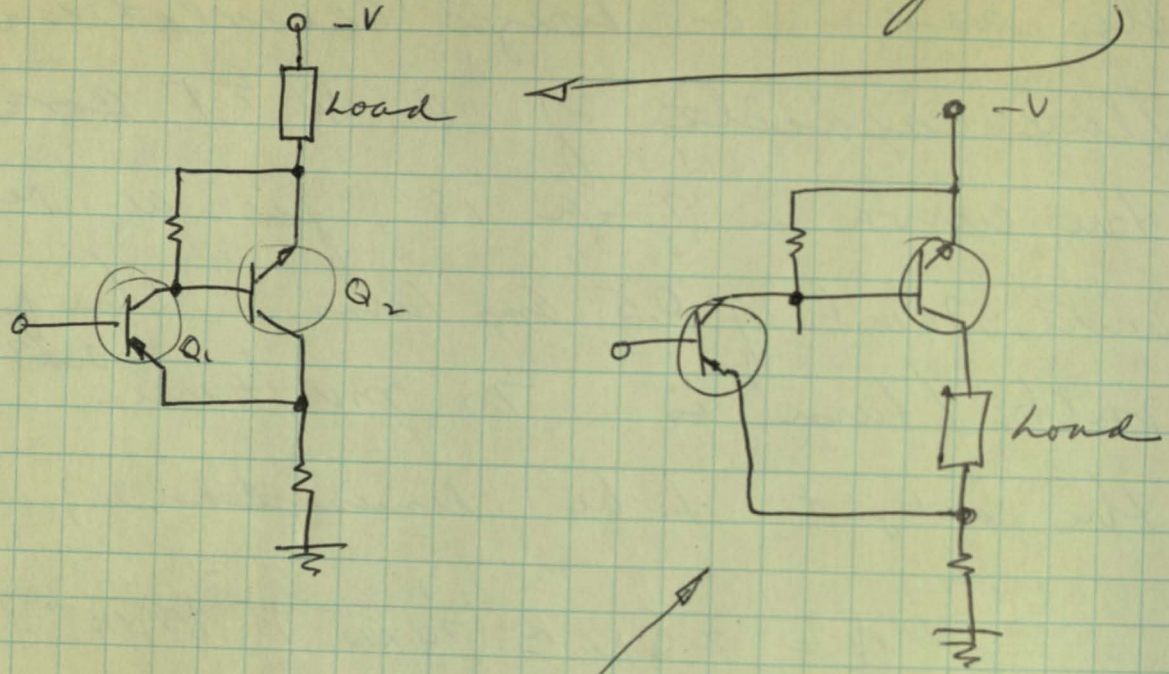 -V
Load
Q2
Q1
-V
Load